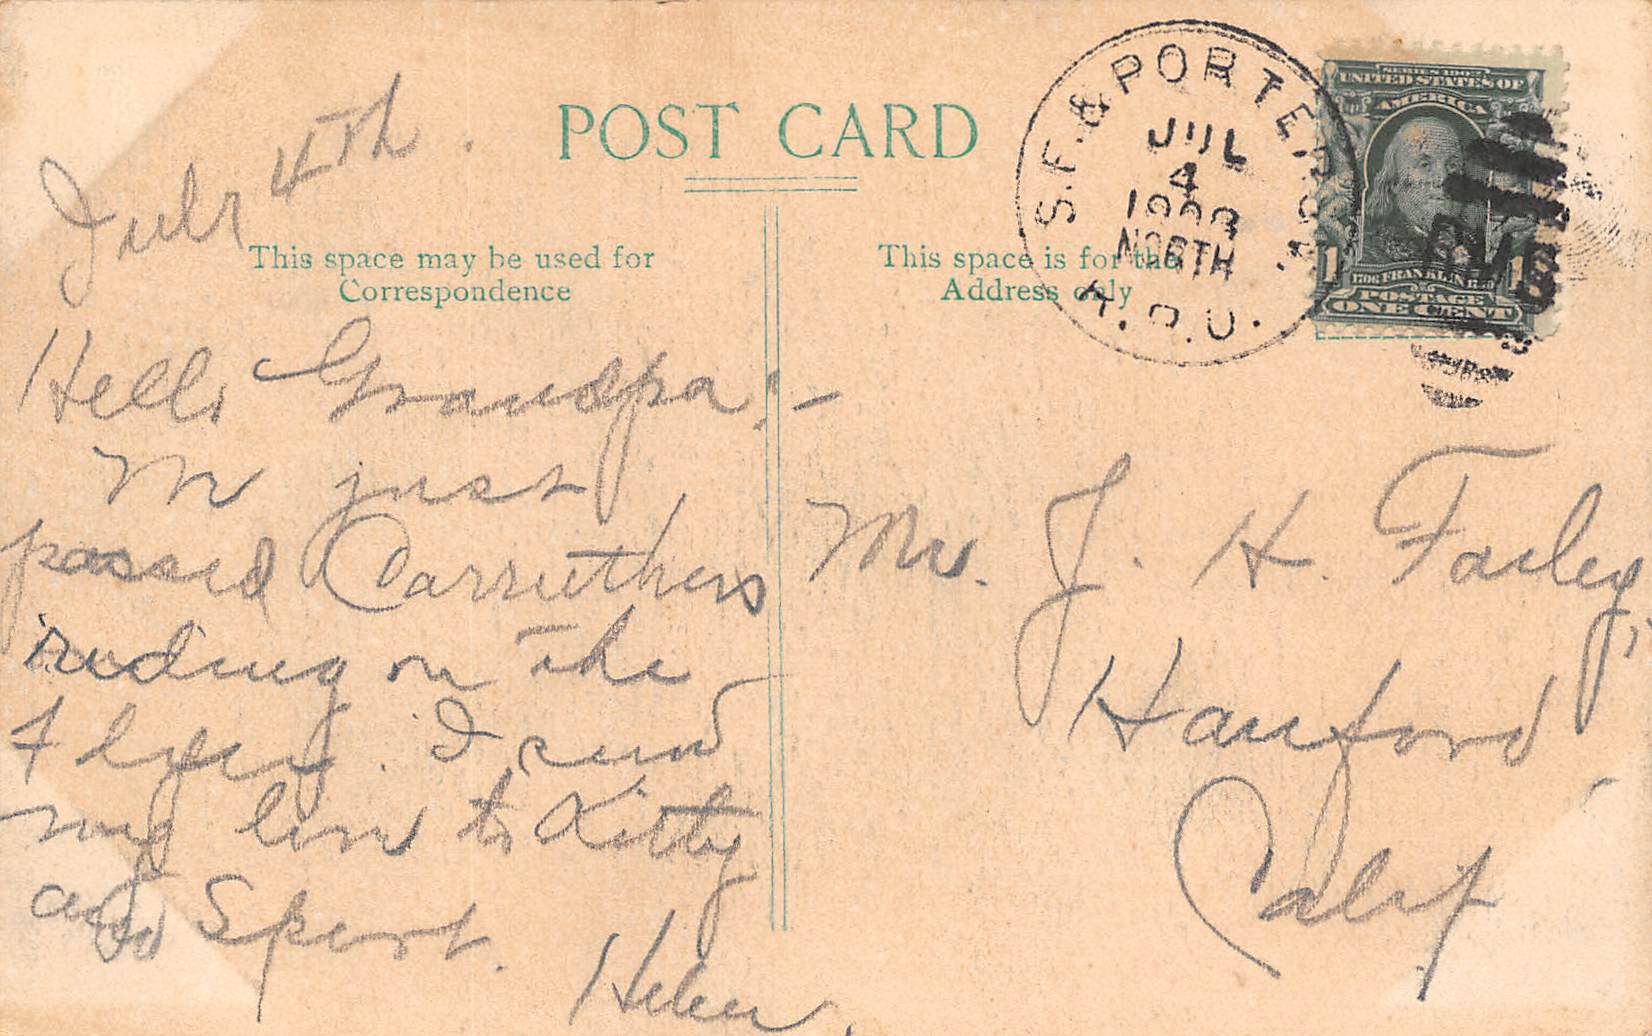 POST CARD
This space may be used for
Correspondence
This space is for the
Address only
S.F. & PORTER
JUL
4
NORTH
R.P.O.
RMS
SERIES 1902
UNITED STATES OF
AMERICA
1 1
FRANKLIN
POSTAGE
ONE CENT
July 4th.
Hello Grandpa:-
We just
passed Carruthers
riding on the
Flyer. I send
my love to Kitty
and Sport.
Helen.
Mr. J. H. Farley,
Hanford,
Calif